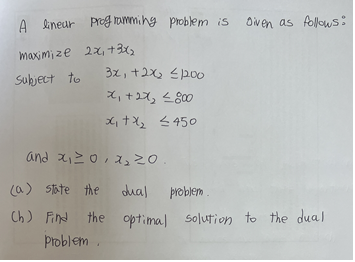 A linear programming problem is given as follows:
maximize 2x₁+3x₂
subject to 3x₁+2x₂ ≤1200
x₁+2x₂ ≤800
x₁+x₂ ≤450
and x₁≥0, x₂≥0.
(a) state the dual problem.
(b) Find the optimal solution to the dual
problem.